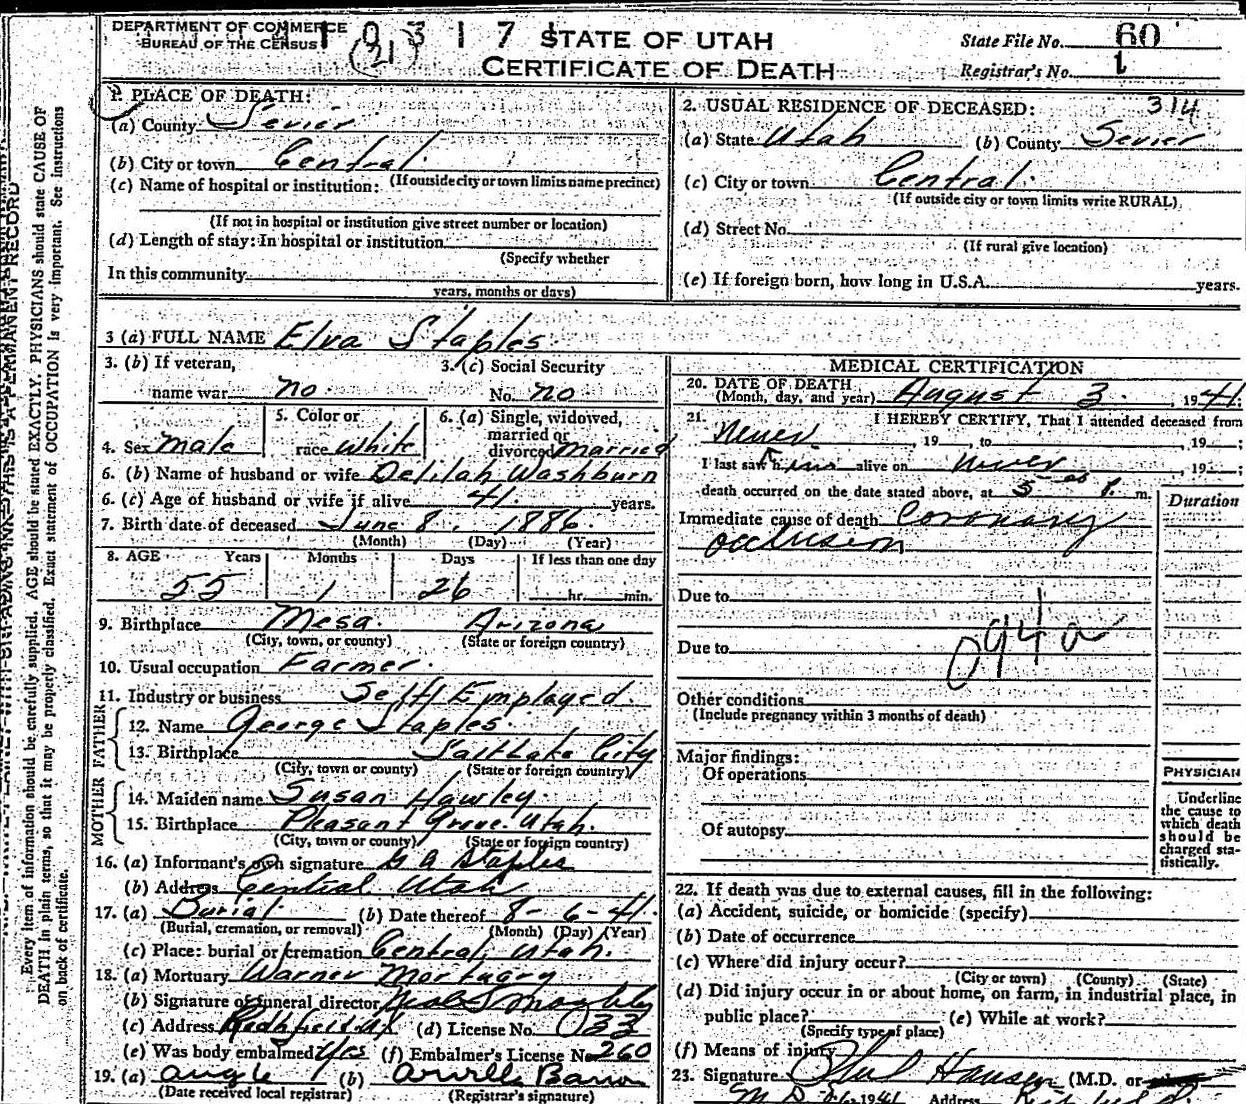 DEPARTMENT OF COMMERCE
BUREAU OF THE CENSUS
(21)
STATE OF UTAH
CERTIFICATE OF DEATH
State File No. 60
Registrar's No. 1
314
1. PLACE OF DEATH:
(a) County Sevier
(b) City or town Central
(c) Name of hospital or institution: (If outside city or town limits name precinct)
(If not in hospital or institution give street number or location)
(d) Length of stay: In hospital or institution
(Specify whether
In this community
years, months or days)
2. USUAL RESIDENCE OF DECEASED:
(a) State Utah (b) County Sevier
(c) City or town Central
(If outside city or town limits write RURAL)
(d) Street No.
(If rural give location)
(e) If foreign born, how long in U.S.A. years.
3 (a) FULL NAME Elva Staples
3. (b) If veteran,
name war no
3. (c) Social Security
No. no
4. Sex male
5. Color or
race white
6. (a) Single, widowed,
married or
divorced married
6. (b) Name of husband or wife Delilah Washburn
6. (c) Age of husband or wife if alive 41 years.
7. Birth date of deceased June 8, 1886
(Month) (Day) (Year)
8. AGE Years Months Days If less than one day
55 1 26 hr. min.
9. Birthplace Mesa Arizona
(City, town, or county) (State or foreign country)
10. Usual occupation Farmer
11. Industry or business Self Employed
FATHER
12. Name George Staples
13. Birthplace Salt Lake City
(City, town or county) (State or foreign country)
MOTHER
14. Maiden name Susan Hawley
15. Birthplace Pleasant Grove Utah
(City, town or county) (State or foreign country)
16. (a) Informant's own signature G A Staples
(b) Address Central Utah
17. (a) Burial (b) Date thereof 8-6-41
(Burial, cremation, or removal) (Month) (Day) (Year)
(c) Place: burial or cremation Central, Utah.
18. (a) Mortuary Warner Mortuary
(b) Signature of funeral director
(c) Address (d) License No. 33
(e) Was body embalmed? Yes (f) Embalmer's License No. 260
19. (a) Aug 6 (b) Arvilla Barron
(Date received local registrar) (Registrar's signature)
MEDICAL CERTIFICATION
20. DATE OF DEATH
(Month, day, and year) August 3, 1941.
21. I HEREBY CERTIFY, That I attended deceased from
never, 19 , to , 19 ;
I last saw him alive on never, 19 ;
death occurred on the date stated above, at 5 P. m.
Duration
Immediate cause of death Coronary
occlusion
Due to
094a
Due to
Other conditions
(Include pregnancy within 3 months of death)
Major findings:
Of operations
Of autopsy
PHYSICIAN
Underline
the cause to
which death
should be
charged sta-
tistically.
22. If death was due to external causes, fill in the following:
(a) Accident, suicide, or homicide (specify)
(b) Date of occurrence
(c) Where did injury occur?
(City or town) (County) (State)
(d) Did injury occur in or about home, on farm, in industrial place, in
public place? (e) While at work?
(Specify type of place)
(f) Means of injury
23. Signature Hansen (M.D. or
M.D. 1941 Address
Every item of information should be carefully supplied. AGE should be stated EXACTLY. PHYSICIANS should state CAUSE OF
DEATH in plain terms, so that it may be properly classified. Exact statement of OCCUPATION is very important. See Instructions
on back of certificate.
THIS IS A PERMANENT RECORD